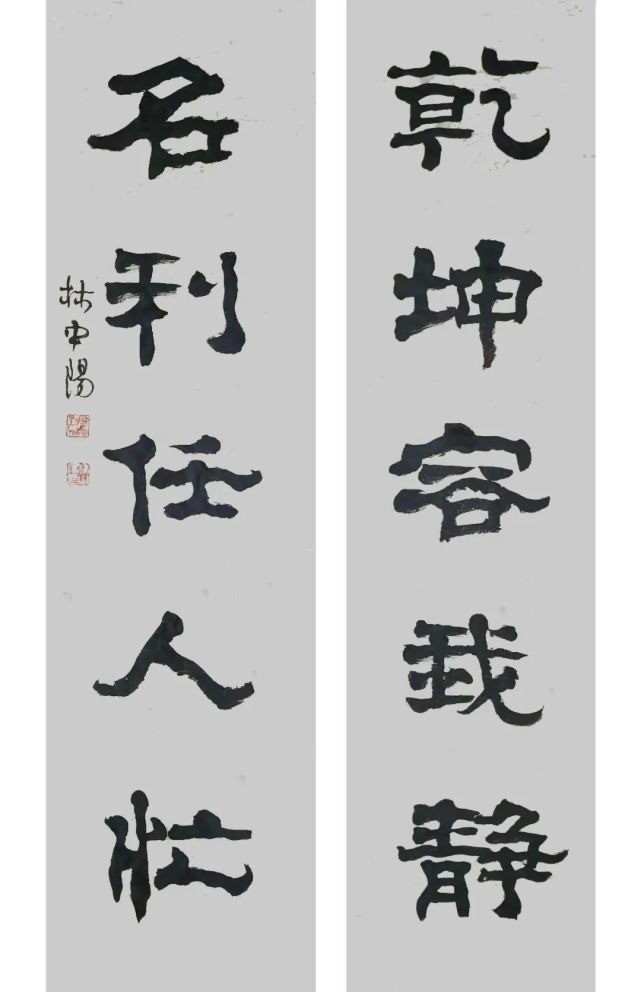 乾坤容我静
名利任人忙
林中阳